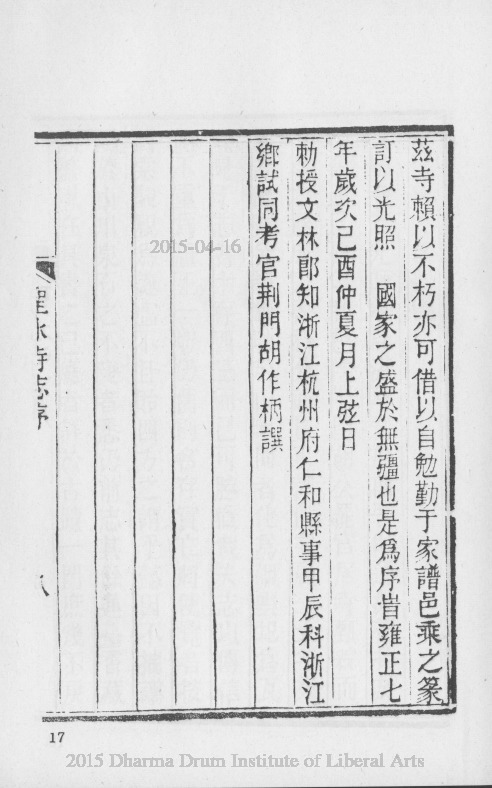 茲寺賴以不朽亦可借以自勉勤于家譜邑乘之篆
訂以光照　國家之盛於無疆也是爲序旹雍正七
年歲次己酉仲夏月上弦日
勅授文林郎知浙江杭州府仁和縣事甲辰科浙江
鄉試同考官荆門胡作柄譔
聖水寺志序
八
2015-04-16
17
2015 Dharma Drum Institute of Liberal Arts